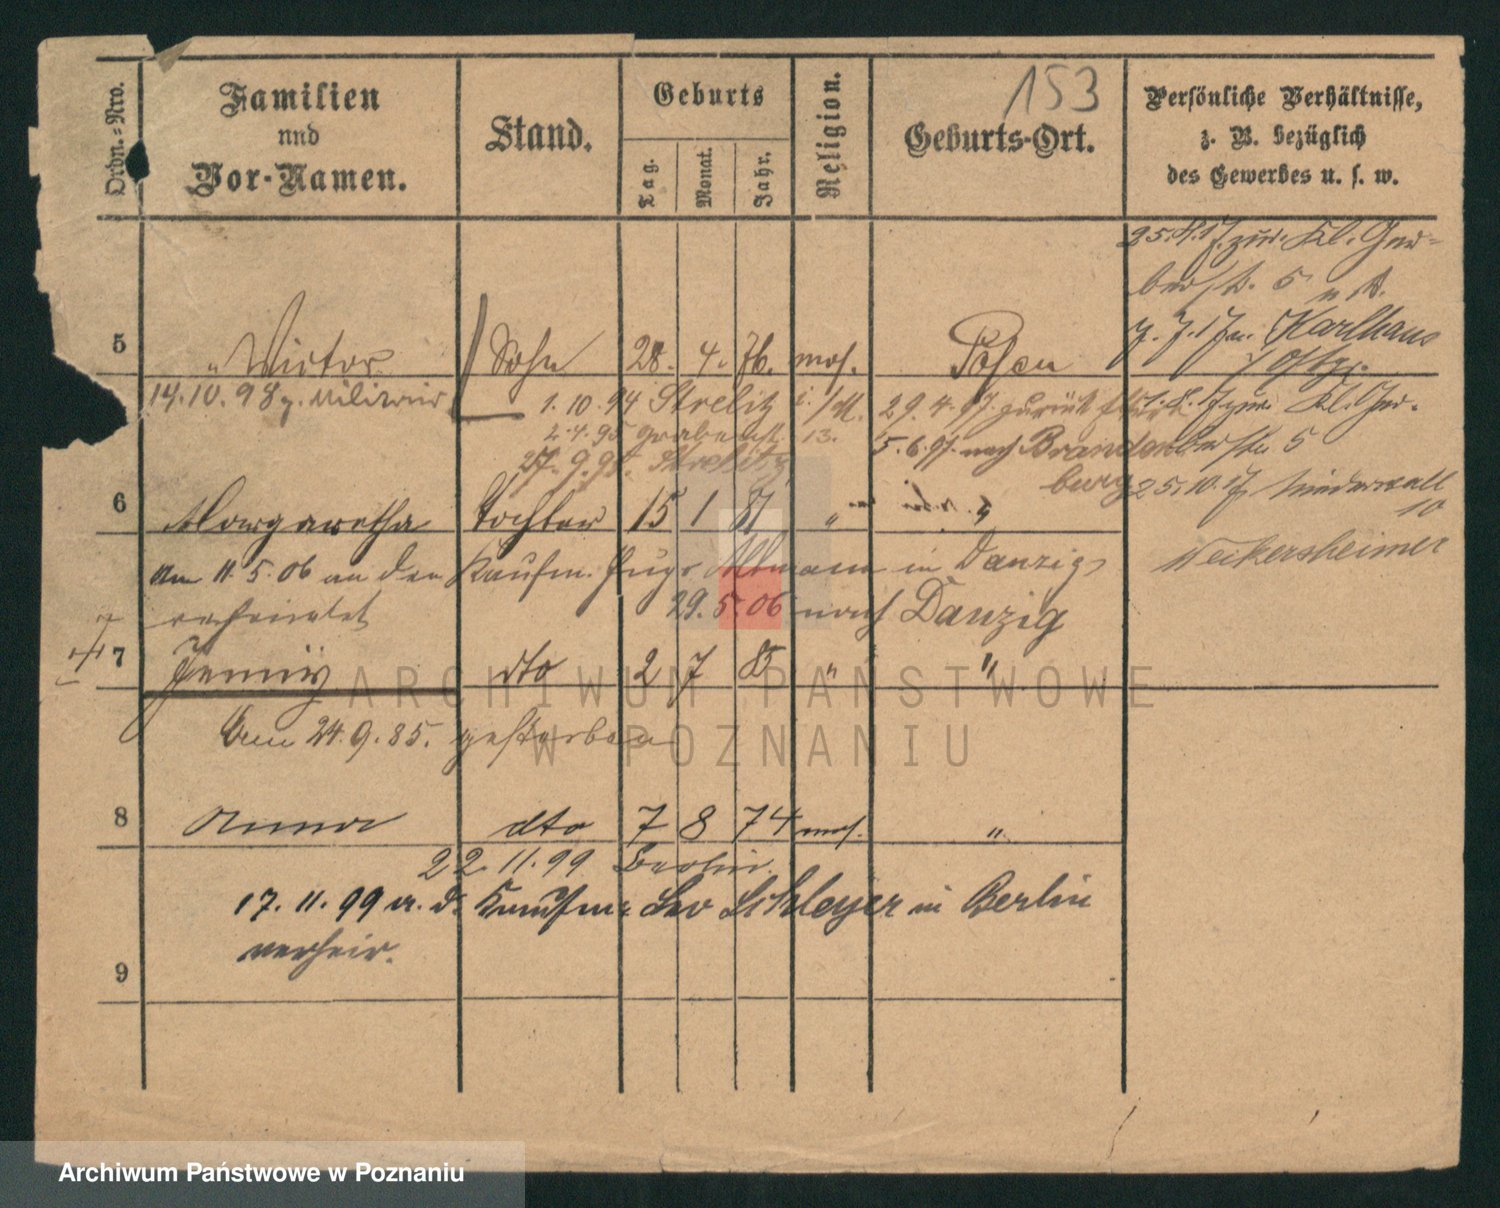 153
Ordn.=Nro.
Familien
und
Vor-Namen.
Stand.
Geburts
Tag.
Monat.
Jahr.
Religion.
Geburts-Ort.
Persönliche Verhältnisse,
z. B. bezüglich
des Gewerbes u. s. w.
25.4.17. zur. Kl. Ger=
berstr. 5
5 Victor Sohn 28. 4. 76. mos. Posen
7.7.17 Karlhaus
14.10.98 z. Militair
1.10.94 Strelitz
29.4.97. zurück
Kl. Ger-
2.4.95 Grabenstr. 13.
berstr. 5
27.9.95. Strelitz
5.6.97. nach Branden
burg
25.10.17 Niederwall
10
6 Margaretha Tochter 15 1 81 " "
Am 11.5.06 an den Kaufm. Hugo Altmann in Danzig
verheirathet
29.5.06 nach Danzig
Weikersheimer
7 Jenny dto 2 7 85 " "
Am 24.9.85. gestorben
8 Anna dto 7 8 74 mos. "
22.11.99 Berlin.
17.11.99 a. d. Kaufm. Leo Schleyer in Berlin
verheir.
9
ARCHIWUM PAŃSTWOWE
W POZNANIU
Archiwum Państwowe w Poznaniu